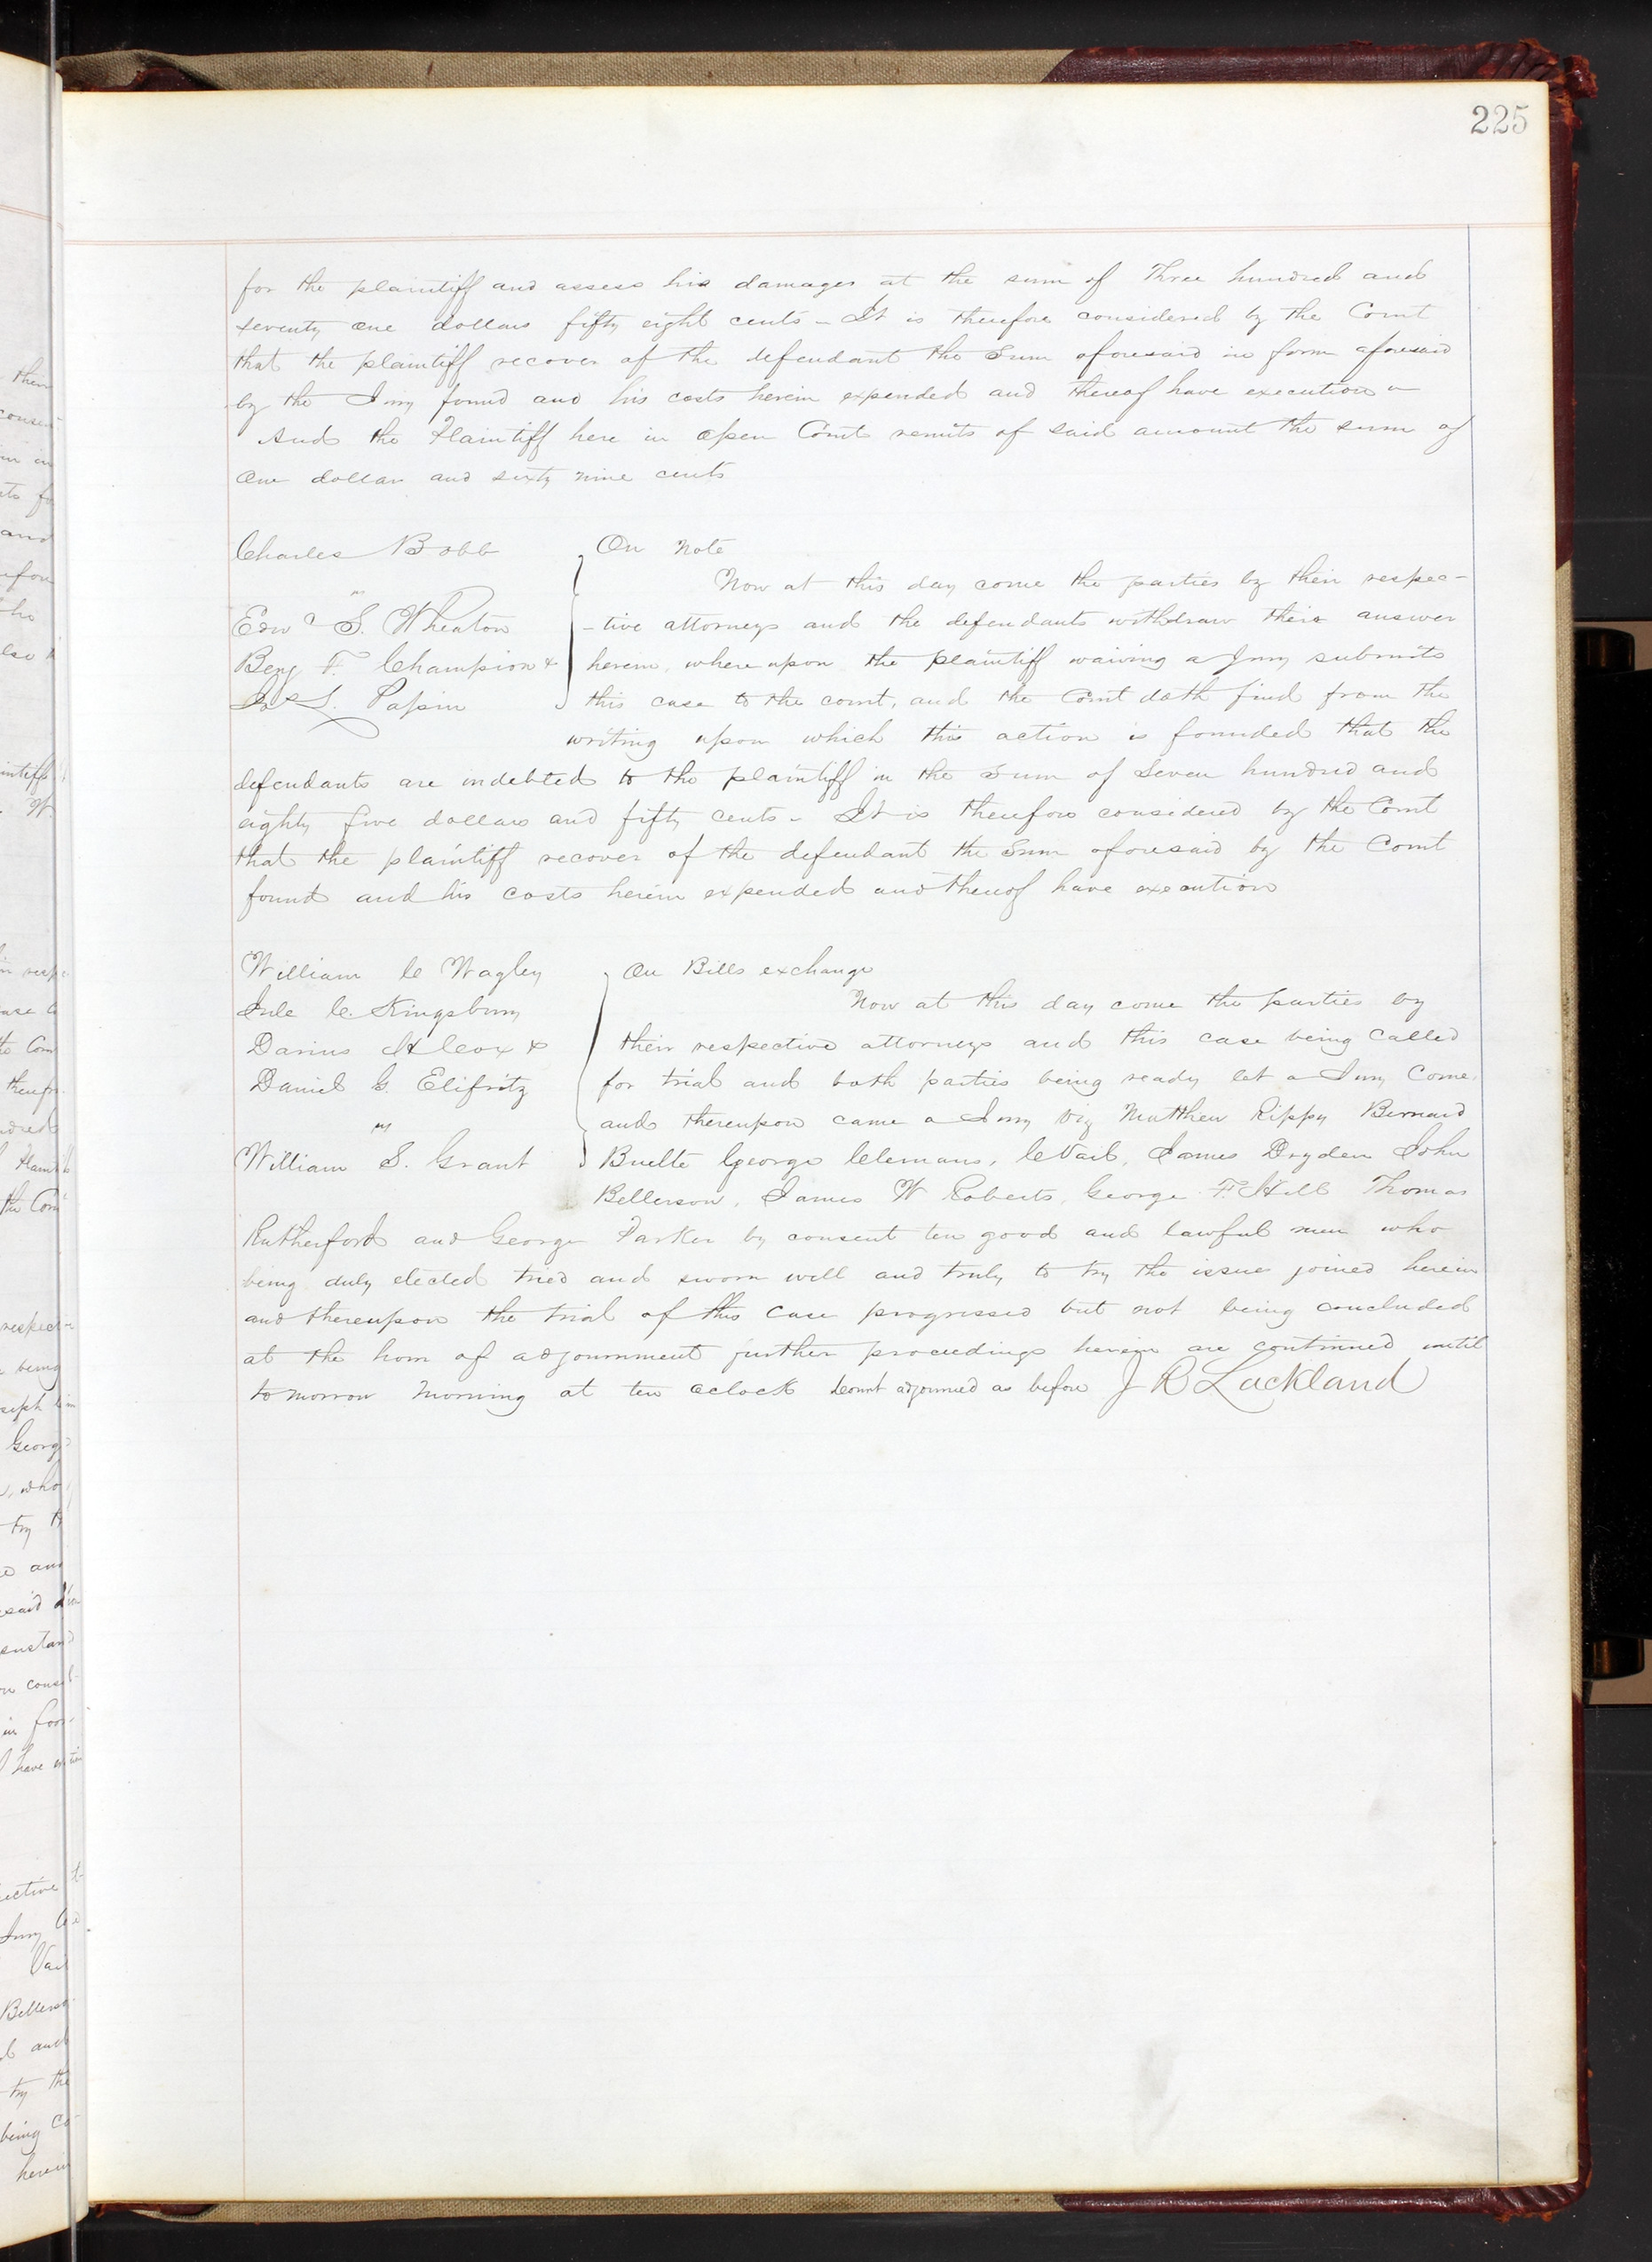 225
for the plaintiff and assess his damages at the sum of Three hundred and
seventy one dollars fifty eight cents - It is therefore considered by the Court
that the plaintiff recover of the defendant the Sum aforesaid in form aforesaid
by the Jury found and his costs herein expended and thereof have execution -
And the Plaintiff here in open Court remits of said amount the sum of
One dollar and sixty nine cents
Charles Bobb
vs
Edwd S. Wheaton
Benj F. Champion &
Jas L. Papin
On Note
Now at this day come the parties by their respec-
-tive attorneys and the defendants withdraw their answer
herein, whereupon the plaintiff waiving a Jury submits
this case to the court, and the Court doth find from the
writing upon which this action is founded that the
defendants are indebted to the plaintiff in the Sum of Seven hundred and
eighty five dollars and fifty cents - It is therefore considered by the Court
that the plaintiff recover of the defendant the Sum aforesaid by the Court
found and his costs herein expended and thereof have execution
William C Wagley
Jule C. Kingsbury
Darius Heox &
Daniel G. Elifritz
vs
William S. Grant
On Bills exchange
Now at this day come the parties by
their respective attorneys and this case being called
for trial and both parties being ready let a Jury Come,
and thereupon came a Jury viz Matthew Rippy Bernard
Buelte George Clemans, C Vail, James Dryden John
Bellerson, James W Roberts, George F. Hill Thomas
Rutherford and George Parker by consent ten good and lawful men who
being duly elected tried and sworn well and truly to try the issue joined herein
and thereupon the trial of this Case progressed but not being concluded
at the hour of adjournment further proceedings herein are continued until
tomorrow morning at ten oclock Court adjourned as before J R Lackland